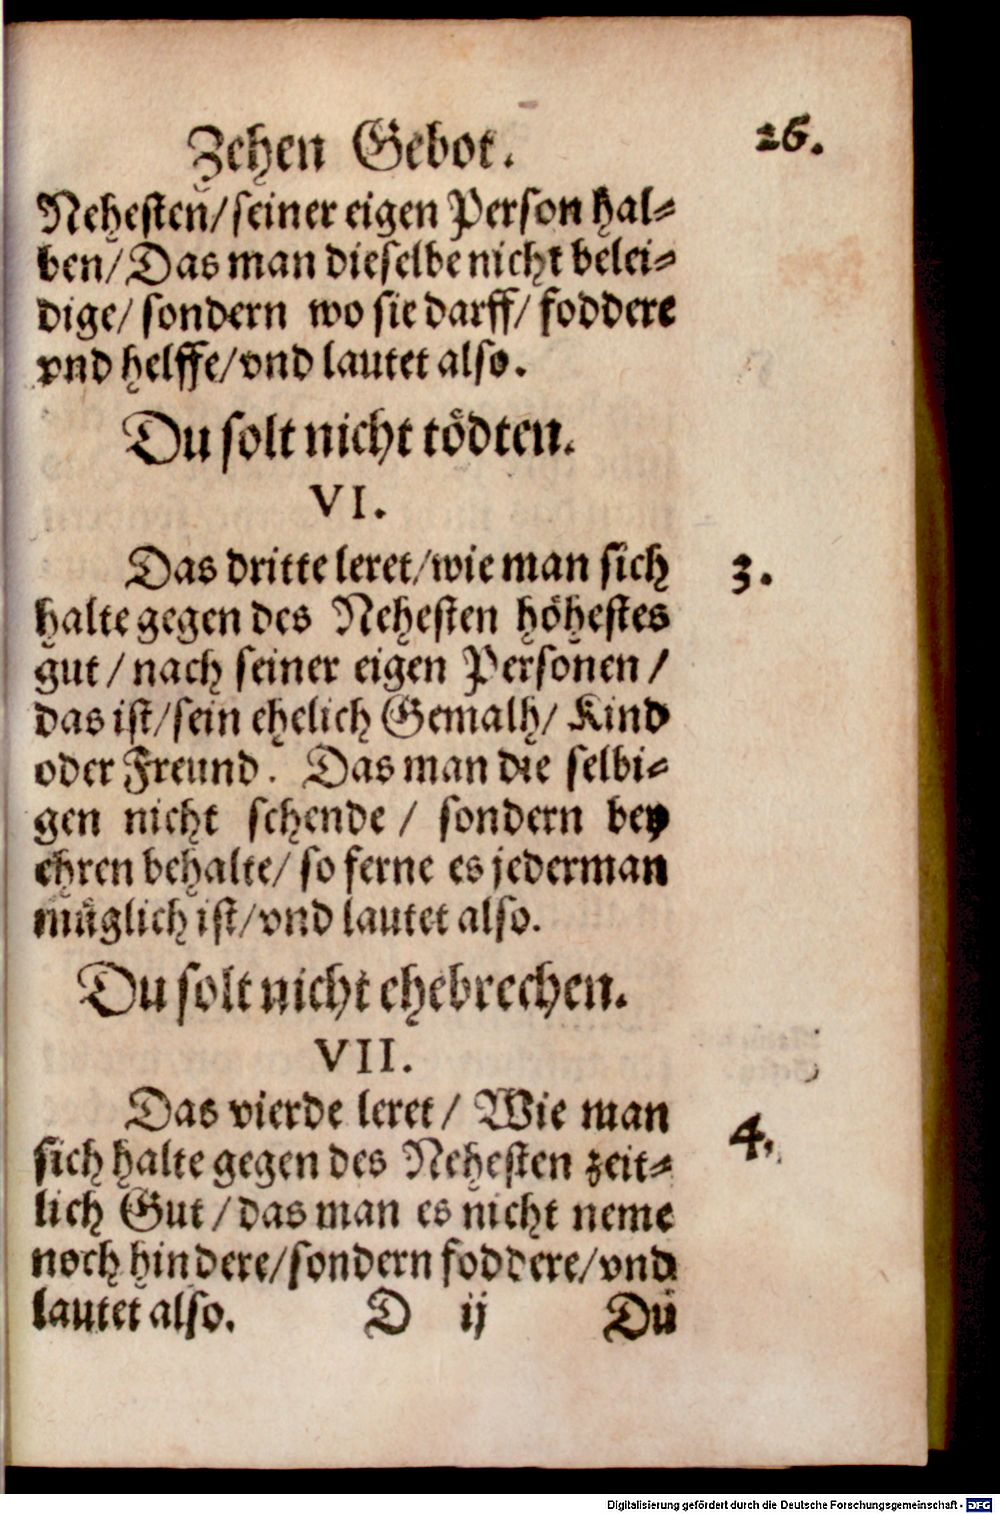 Zehen Gebot. 26.
Nehesten/ seiner eigen Person hal⸗
ben/ Das man dieselbe nicht belei⸗
dige/ sondern wo sie darff/ foddere
vnd helffe/ vnd lautet also.
Du solt nicht tödten.
VI.
Das dritte leret/ wie man sich 3.
halte gegen des Nehesten höhestes
gut/ nach seiner eigen Personen/
das ist/ sein ehelich Gemalh/ Kind
oder Freund. Das man die selbi⸗
gen nicht schende/ sondern bey
ehren behalte/ so ferne es jederman
müglich ist/ vnd lautet also.
Du solt nicht ehebrechen.
VII.
Das vierde leret/ Wie man 4.
sich halte gegen des Nehesten zeit⸗
lich Gut/ das man es nicht neme
noch hindere/ sondern foddere/ vnd
lautet also. D ij Du
Digitalisierung gefördert durch die Deutsche Forschungsgemeinschaft - DFG